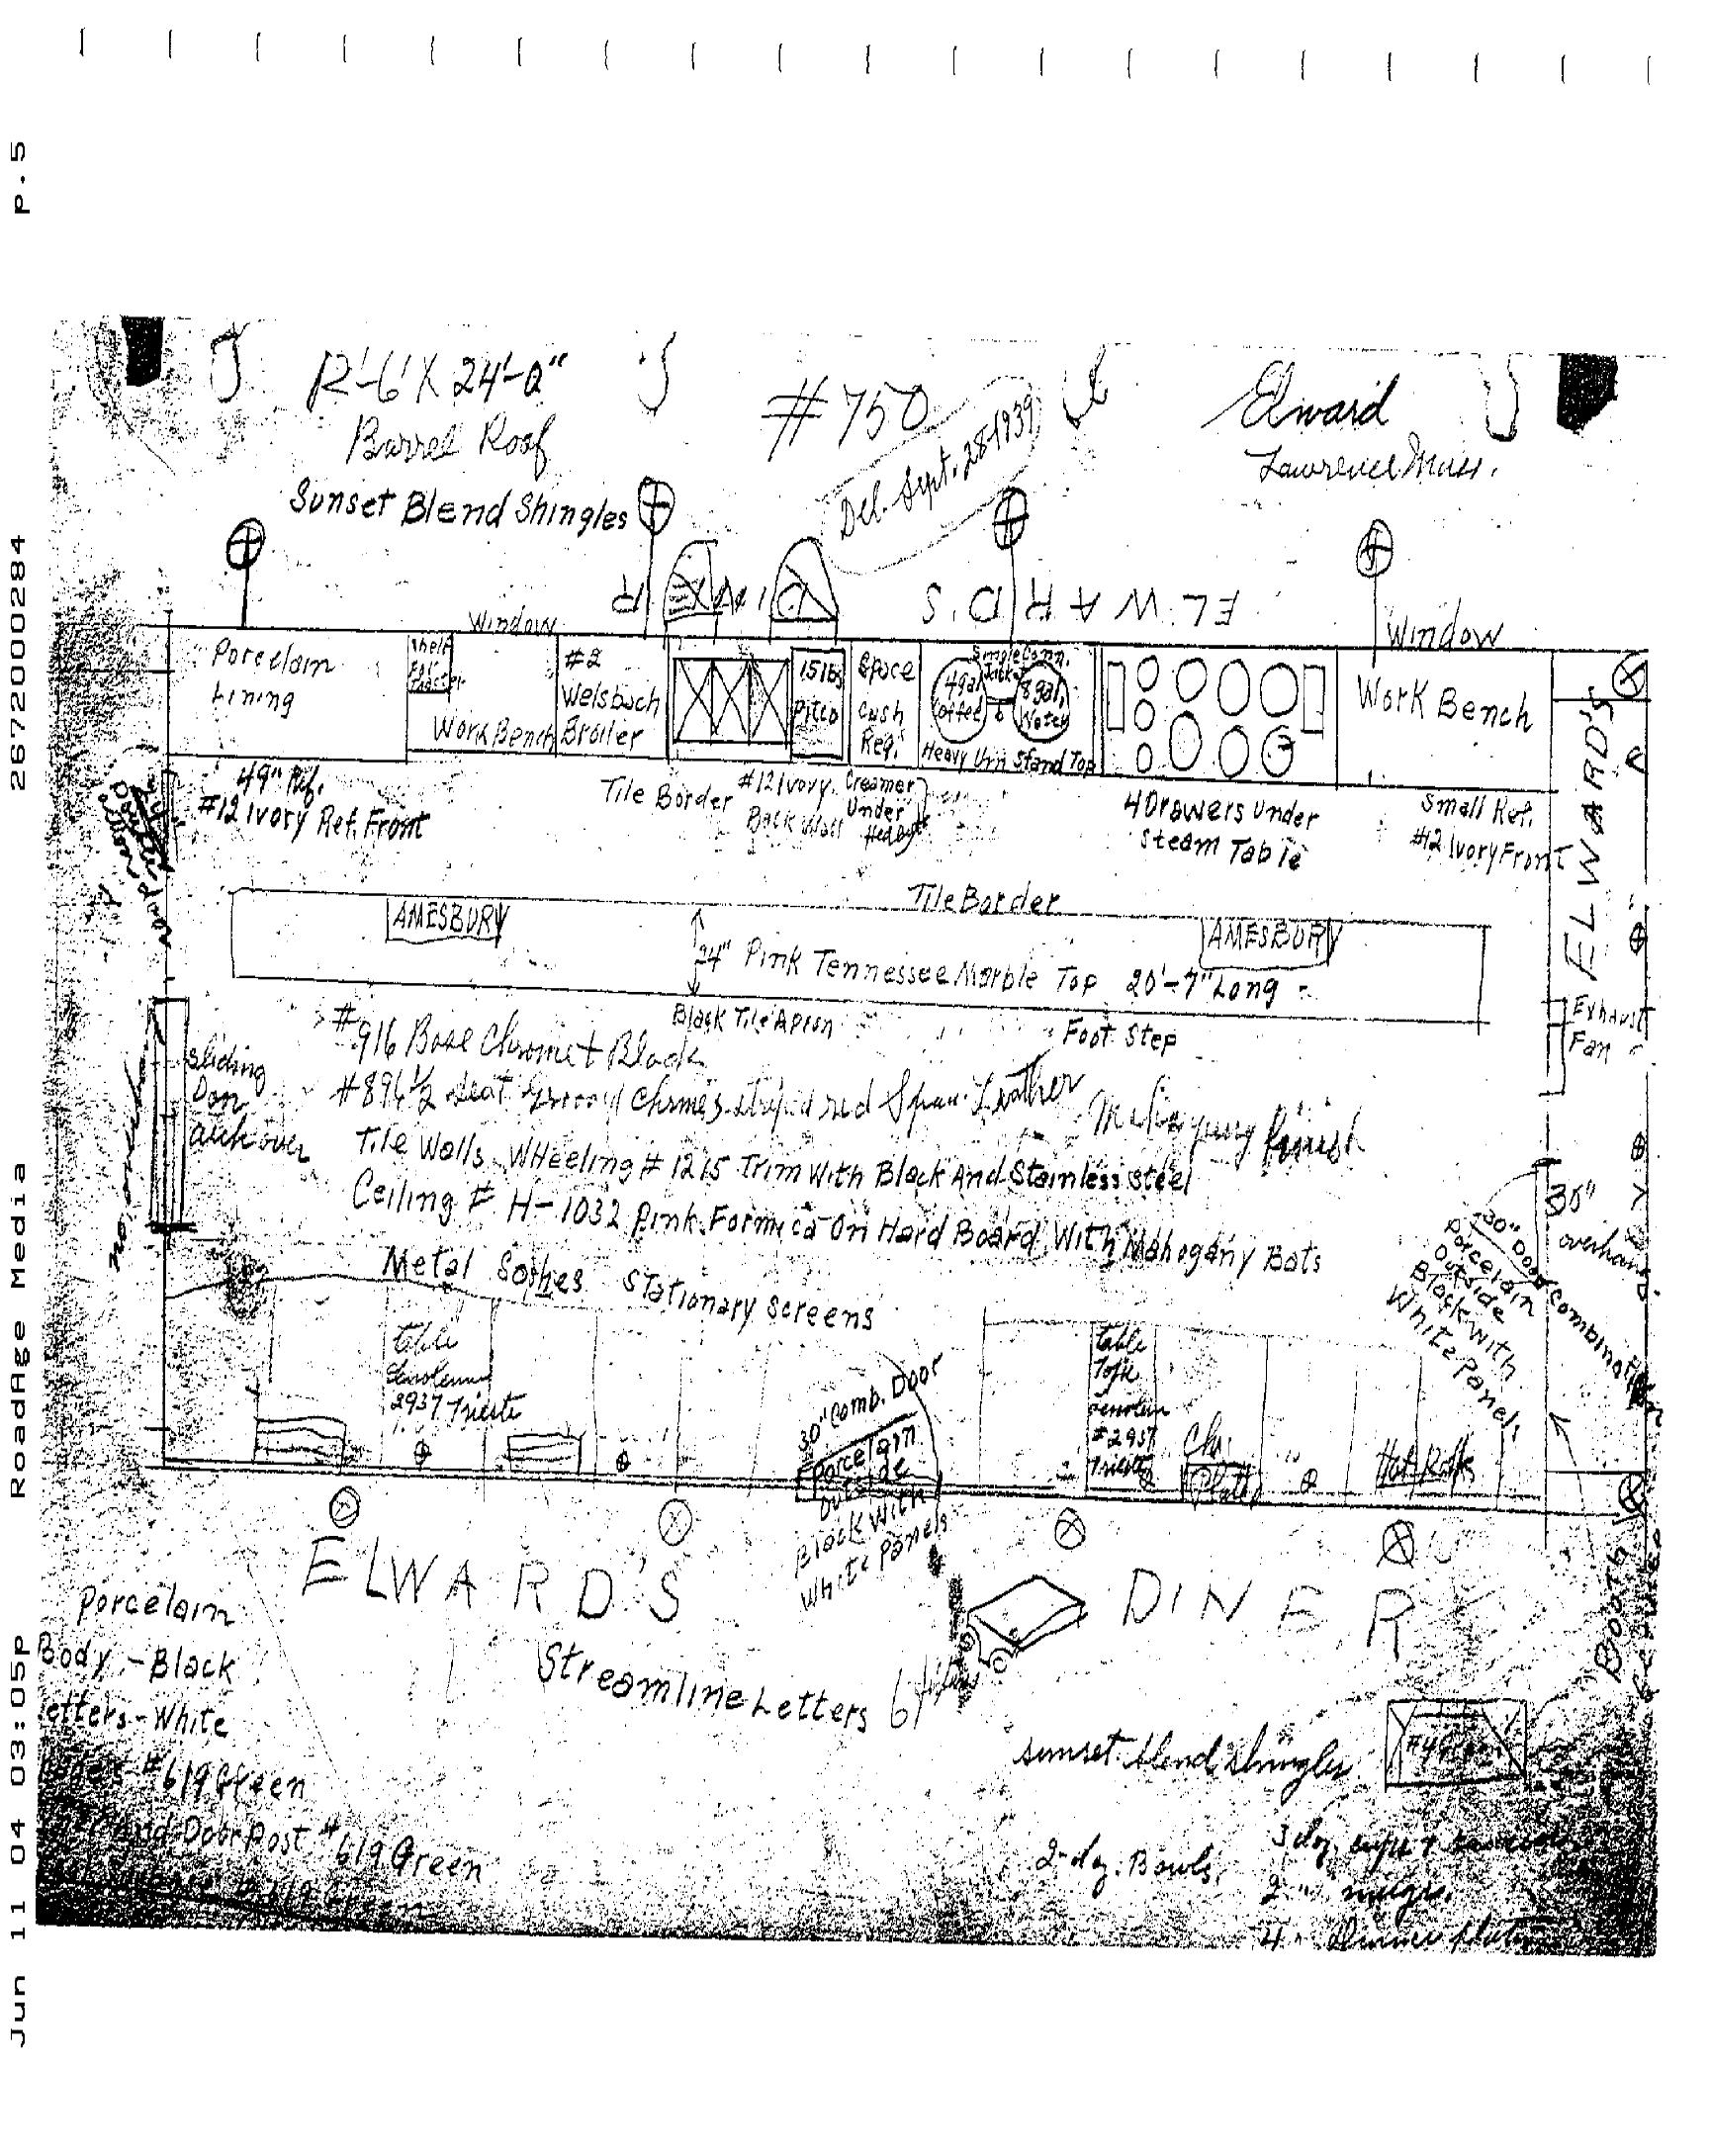 P.5
2672000284
RoadAge Media
Jun 11 04 03:05p
R'-6' X 24'-0"
Barrel Roof
Sunset Blend Shingles
#750
Del. Sept. 28-1939
Elward
Lawrence Mass.
ELWARD'S DINER
Window
Window
Porcelain
Lining
Shelf
For
Work Bench
#2
Welsbach
Broiler
15 lbs
Pitco
Space
Cash
Reg.
Single Conn.
4 gal
Coffee
8 gal,
Water
Heavy Urn Stand Top
Work Bench
49" Ref.
#12 Ivory Ref. Front
Tile Border
#12 Ivory
Back Wall
Creamer
Under
4 Drawers Under
Steam Table
Small Ref.
#12 Ivory Front
ELWARD'S
Tile Border
AMESBURY
AMESBURY
24" Pink Tennessee Marble Top 20'-7" Long
Black Tile Apron
Foot Step
Exhaust
Fan
Sliding
Door
arch over
#916 Base Chrome & Black
#896 1/2 Seat Chrome striped red Leather
finish
Tile Walls Wheeling #1215 Trim With Black And Stainless Steel
Ceiling # H-1032 Pink Formica On Hard Board With Mahogany Bats
Metal Sashes Stationary Screens
30"
overhang
30" Door Combination
Porcelain
Outside
Black With
White Panels
table
2937 Trieste
30" Comb. Door
Porcelain
Outside
Black With
White Panels
table
Tops
#2937
Trieste
ELWARD'S DINER
Streamline Letters
Booth
Porcelain
Body - Black
Letters - White
#619 Green
And Door Post #619 Green
sunset blend shingles
2-doz. Bowls.
3 doz. cups &
2 " mugs.
4 " Dinner plates